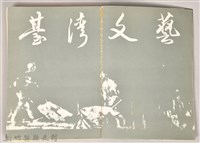 臺灣文藝